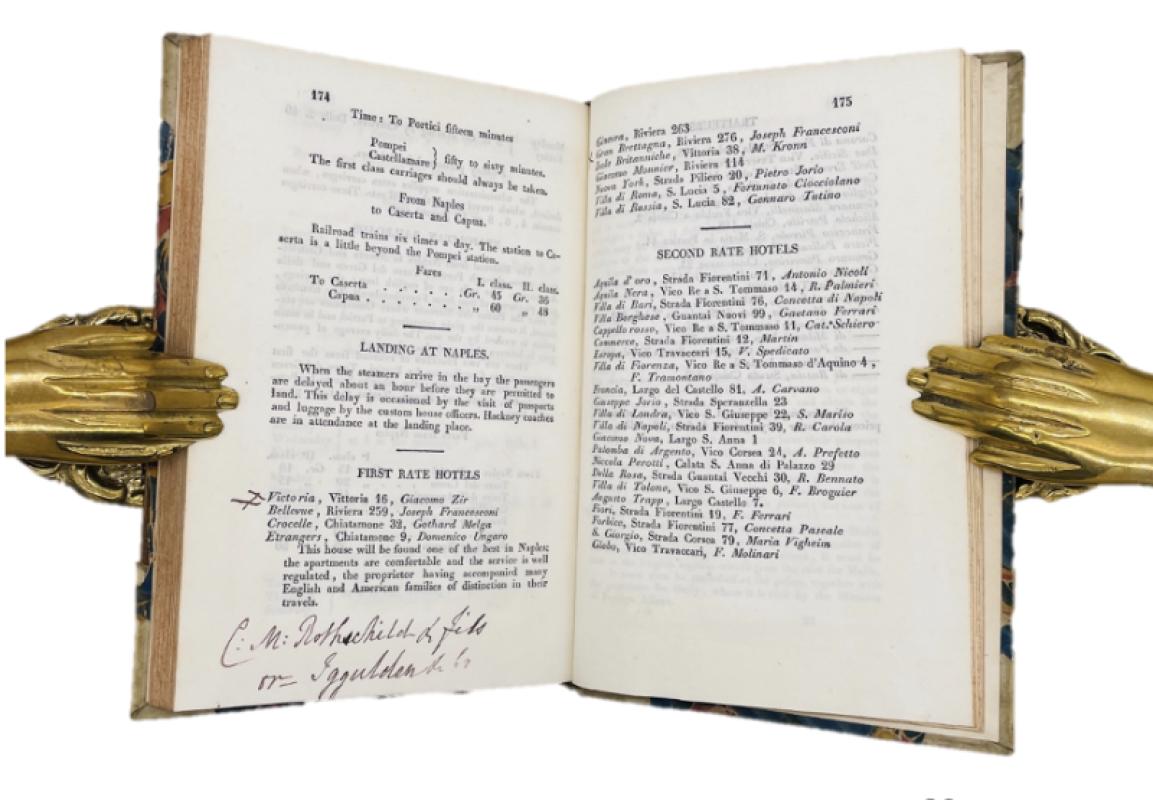 174
Time: To Portici fifteen minutes
Pompei
Castellamare } fifty to sixty minutes.
The first class carriages should always be taken.
From Naples
to Caserta and Capua.
Railroad trains six times a day. The station to Ca-
serta is a little beyond the Pompei station.
Fares
I. class. II. class.
To Caserta . . . . . . .Gr. 45 Gr. 36
Capua . . . . . . . . „ 60 „ 48
LANDING AT NAPLES.
When the steamers arrive in the bay the passengers
are delayed about an hour before they are permitted to
land. This delay is occasioned by the visit of passports
and luggage by the custom house officers. Hackney coaches
are in attendance at the landing place.
FIRST RATE HOTELS
Victoria, Vittoria 16, Giacomo Zir
Bellevue, Riviera 259, Joseph Francesconi
Crocelle, Chiatamone 32, Gothard Melga
Etrangers, Chiatamone 9, Domenico Ungaro
This house will be found one of the best in Naples;
the apartments are comfortable and the service is well
regulated, the proprietor having accompanied many
English and American families of distinction in their
travels.
C: M: Rothschild & fils
or= Iggulden & Co
175
Ginevra, Riviera 263
Gran Brettagna, Riviera 276, Joseph Francesconi
Isole Britanniche, Vittoria 38, M. Kronn
Giacomo Monnier, Riviera 114
Nuova York, Strada Piliero 20, Pietro Jorio
Villa di Roma, S. Lucia 5, Fortunato Ciocciolano
Villa di Russia, S. Lucia 82, Gennaro Tutino
SECOND RATE HOTELS
Aquila d'oro, Strada Fiorentini 71, Antonio Nicoli
Aquila Nera, Vico Re a S. Tommaso 14, R. Palmieri
Villa di Bari, Strada Fiorentini 76, Concetta di Napoli
Villa Borghese, Guantai Nuovi 99, Gaetano Ferrari
Cappello rosso, Vico Re a S. Tommaso 11, Cat.ª Schiero
Commerce, Strada Fiorentini 12, Martin
Europa, Vico Travaccari 15, V. Spedicato
Villa di Fiorenza, Vico Re a S. Tommaso d'Aquino 4,
F. Tramontano
Francia, Largo del Castello 81, A. Carvano
Guseppe Jorio, Strada Speranzella 23
Villa di Londra, Vico S. Giuseppe 22, S. Mariso
Villa di Napoli, Strada Fiorentini 39, R. Carola
Giacomo Nova, Largo S. Anna 1
Palomba di Argento, Vico Corsea 24, A. Prefetto
Niccola Perotti, Calata S. Anna di Palazzo 29
Della Rosa, Strada Guantai Vecchi 30, R. Bennato
Villa di Tolone, Vico S. Giuseppe 6, F. Broguier
Augusto Trapp, Largo Castello 7.
Fiori, Strada Fiorentini 19, F. Ferrari
Forbice, Strada Fiorentini 77, Concetta Pascale
S. Giorgio, Strada Corsea 79, Maria Vigheim
Globo, Vico Travaccari, F. Molinari